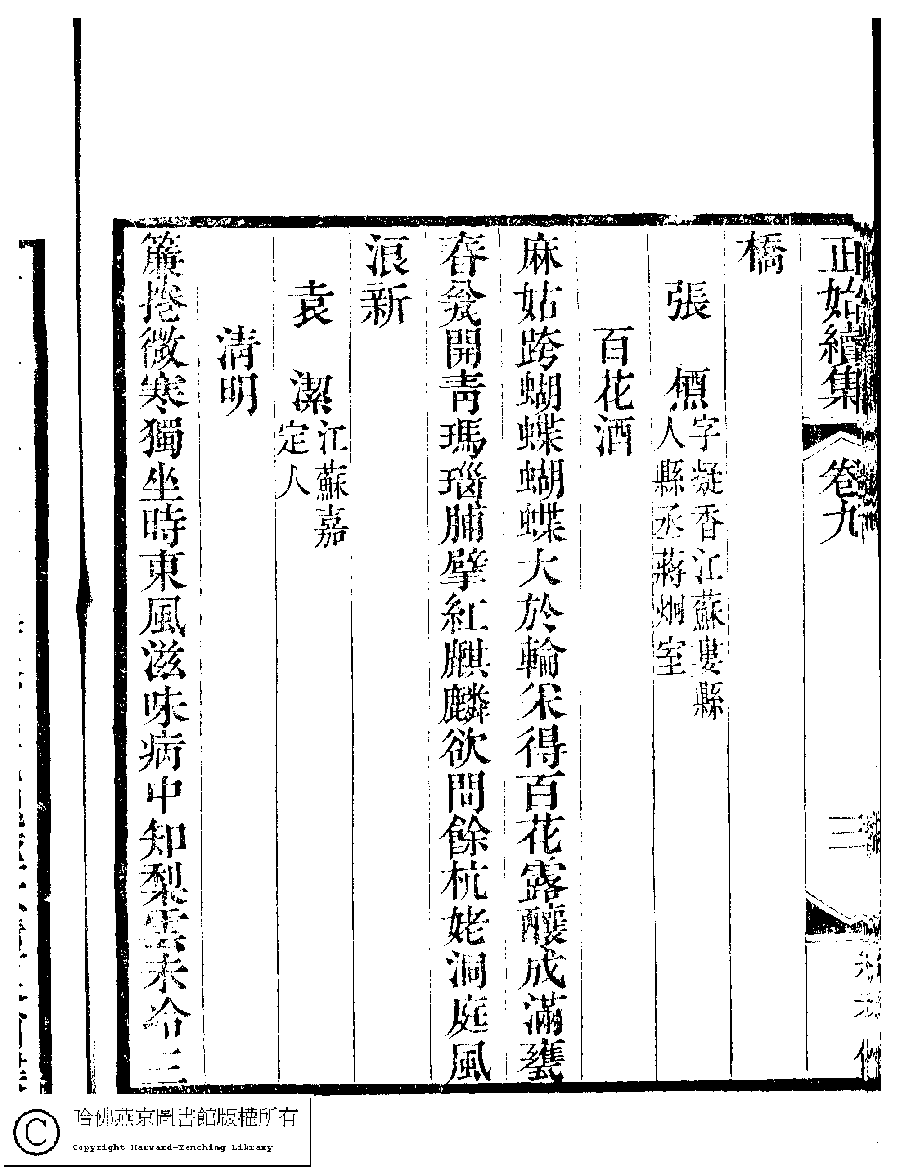 正始續集 卷九 三
橋
張 㯳字凝香江蘇婁縣人縣丞蔣炯室
百花酒
麻姑跨蝴蝶蝴蝶大於輪采得百花露釀成滿甕
春瓮開青瑪瑙脯擘紅麒麟欲問餘杭姥洞庭風
浪新
袁 潔江蘇嘉定人
清明
簾捲微寒獨坐時東風滋味病中知梨雲未冷三
哈佛燕京圖書館版權所有
Copyright Harvard-Yenching Library